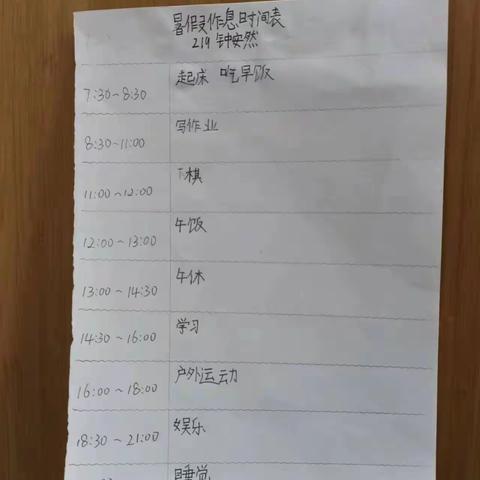 暑假作息时间表
219 钟安然
7:30~8:30 起床 吃早饭
8:30~11:00 写作业
11:00~12:00 下棋
12:00~13:00 午饭
13:00~14:30 午休
14:30~16:00 学习
16:00~18:00 户外运动
18:30~21:00 娱乐
睡觉